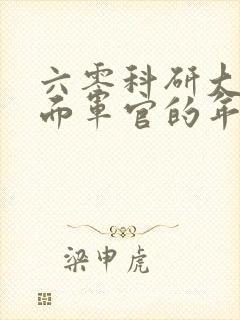 六零科研大
而军官的年
梁申虎